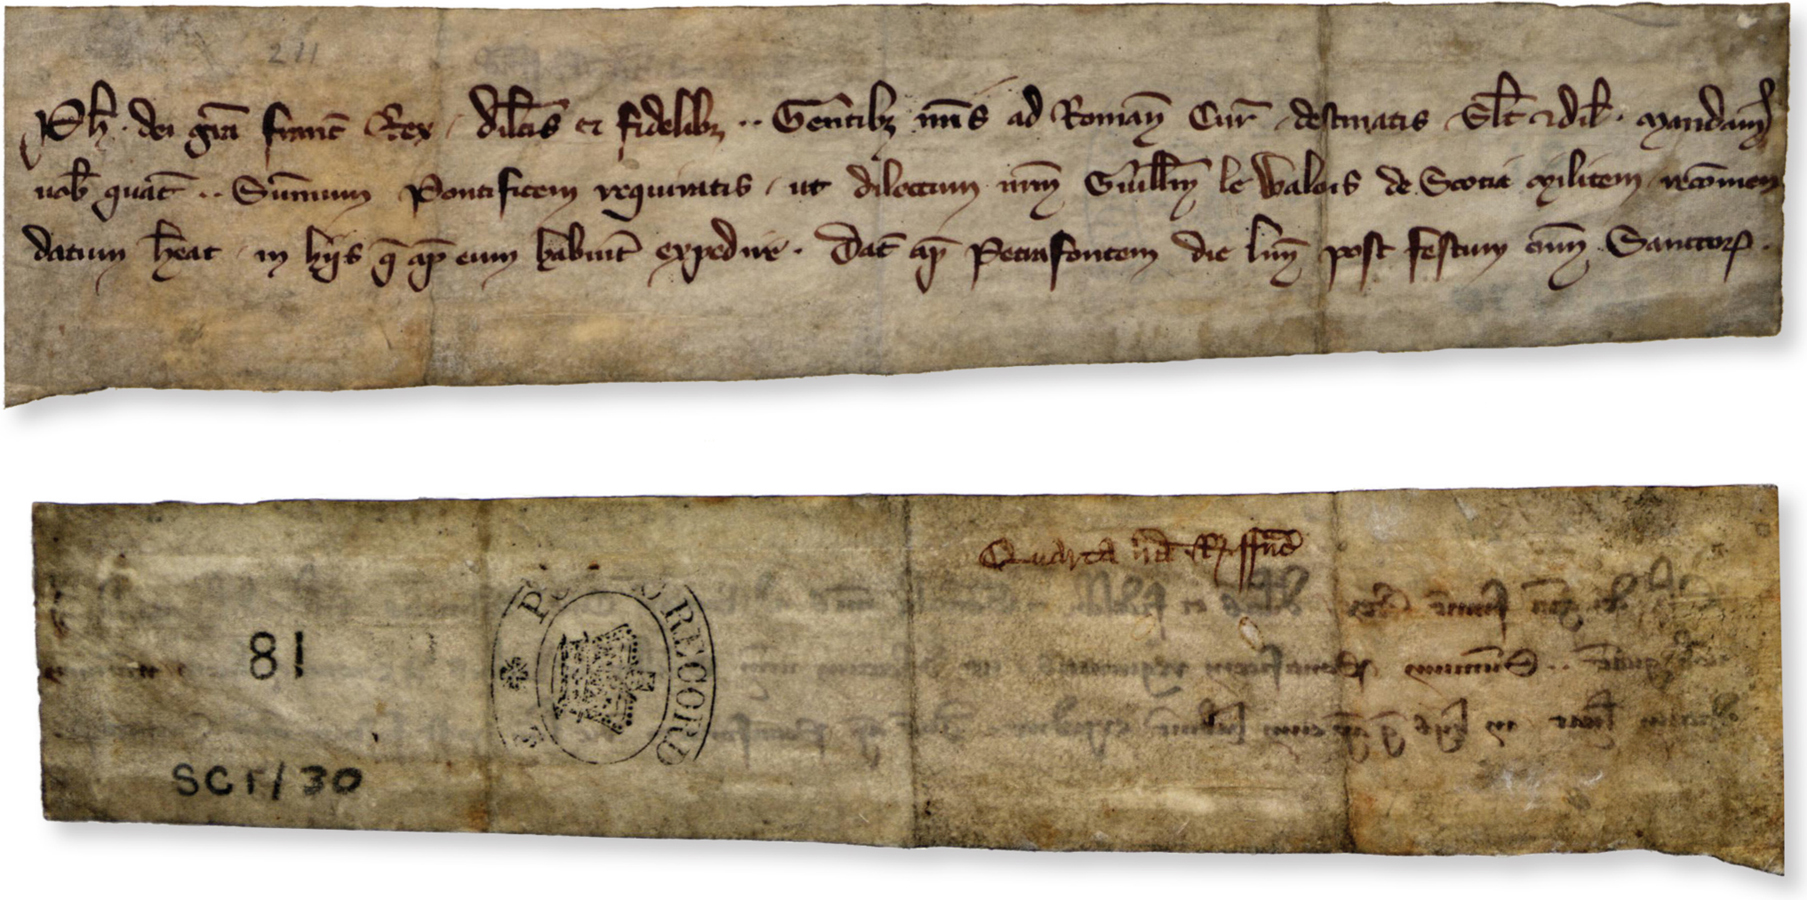 211
Ph. dei gr̄a franc̄ Rex dil̄cis et fidelibꝫ ·· Gentibꝫ nr̄is ad Romaꝫ Cur̄ destinatis Sal̄t et dil̄. Mandamꝰ
uob̄ quat̄ ·· Summum Pontificem requiratis ut dilectum nr̄m Guill̄m le Walois de Scotia Militem recōmen
datum h̄eat in hijs q̄ ap̄ eum habuit̄ expedire. Dat̄ ap̄ Petrafontem die lun̄ post festum om̄ Sanctoꝝ.
Quarta
RECORD
81
SCI/30